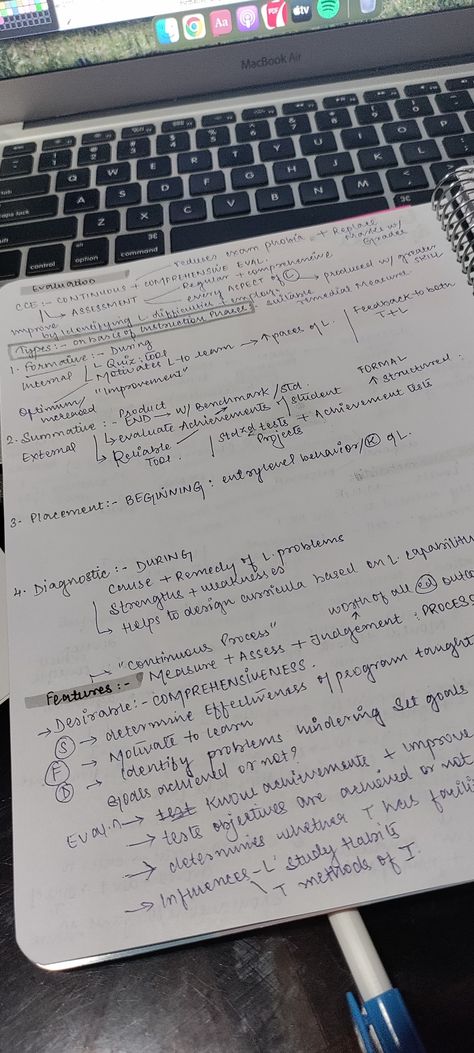 MacBook Air
Evaluation
reduces exam phobia + Replace Marks w/ Grades
CCE :- CONTINUOUS + COMPREHENSIVE EVAL.
↳ ASSESSMENT
Regular + comprehensive
every ASPECT OF L
produced w/ greater skill
improve by identifying L. difficulties + employ suitable remedial measures
Types :- on basis of Instruction Phases
1. Formative :- During
Internal
Quiz : tool
Motivates L to learn → ↑ paces of L.
Feedback to both T + L
"Improvement"
Optimum/increased
2. Summative :- Product END → w/ Benchmark / Std.
FORMAL
↑ structured :
External
evaluate Achievements / student
Reliable Tool.
Stdzd tests + Achievement tests
Projects
3. Placement :- BEGINNING : entry level behavior/K of L.
4. Diagnostic :- DURING
Cause + Remedy of L. problems
Strengths + weaknesses
Helps to design curricula based on L. capabilities
"Continuous Process"
worth of all ed
Features :-
Measure + Assess + Judgement : PROCESS
→ Desirable :- COMPREHENSIVENESS.
S → determine Effectiveness of program taught
F → Motivate to learn
D → Identify problems hindering set goals
Goals achieved or not?
Eval.n → test Know achievements + improve
→ tests objectives are achieved or not
→ determines whether T has
→ Influences - L' study Habits
T methods of I.